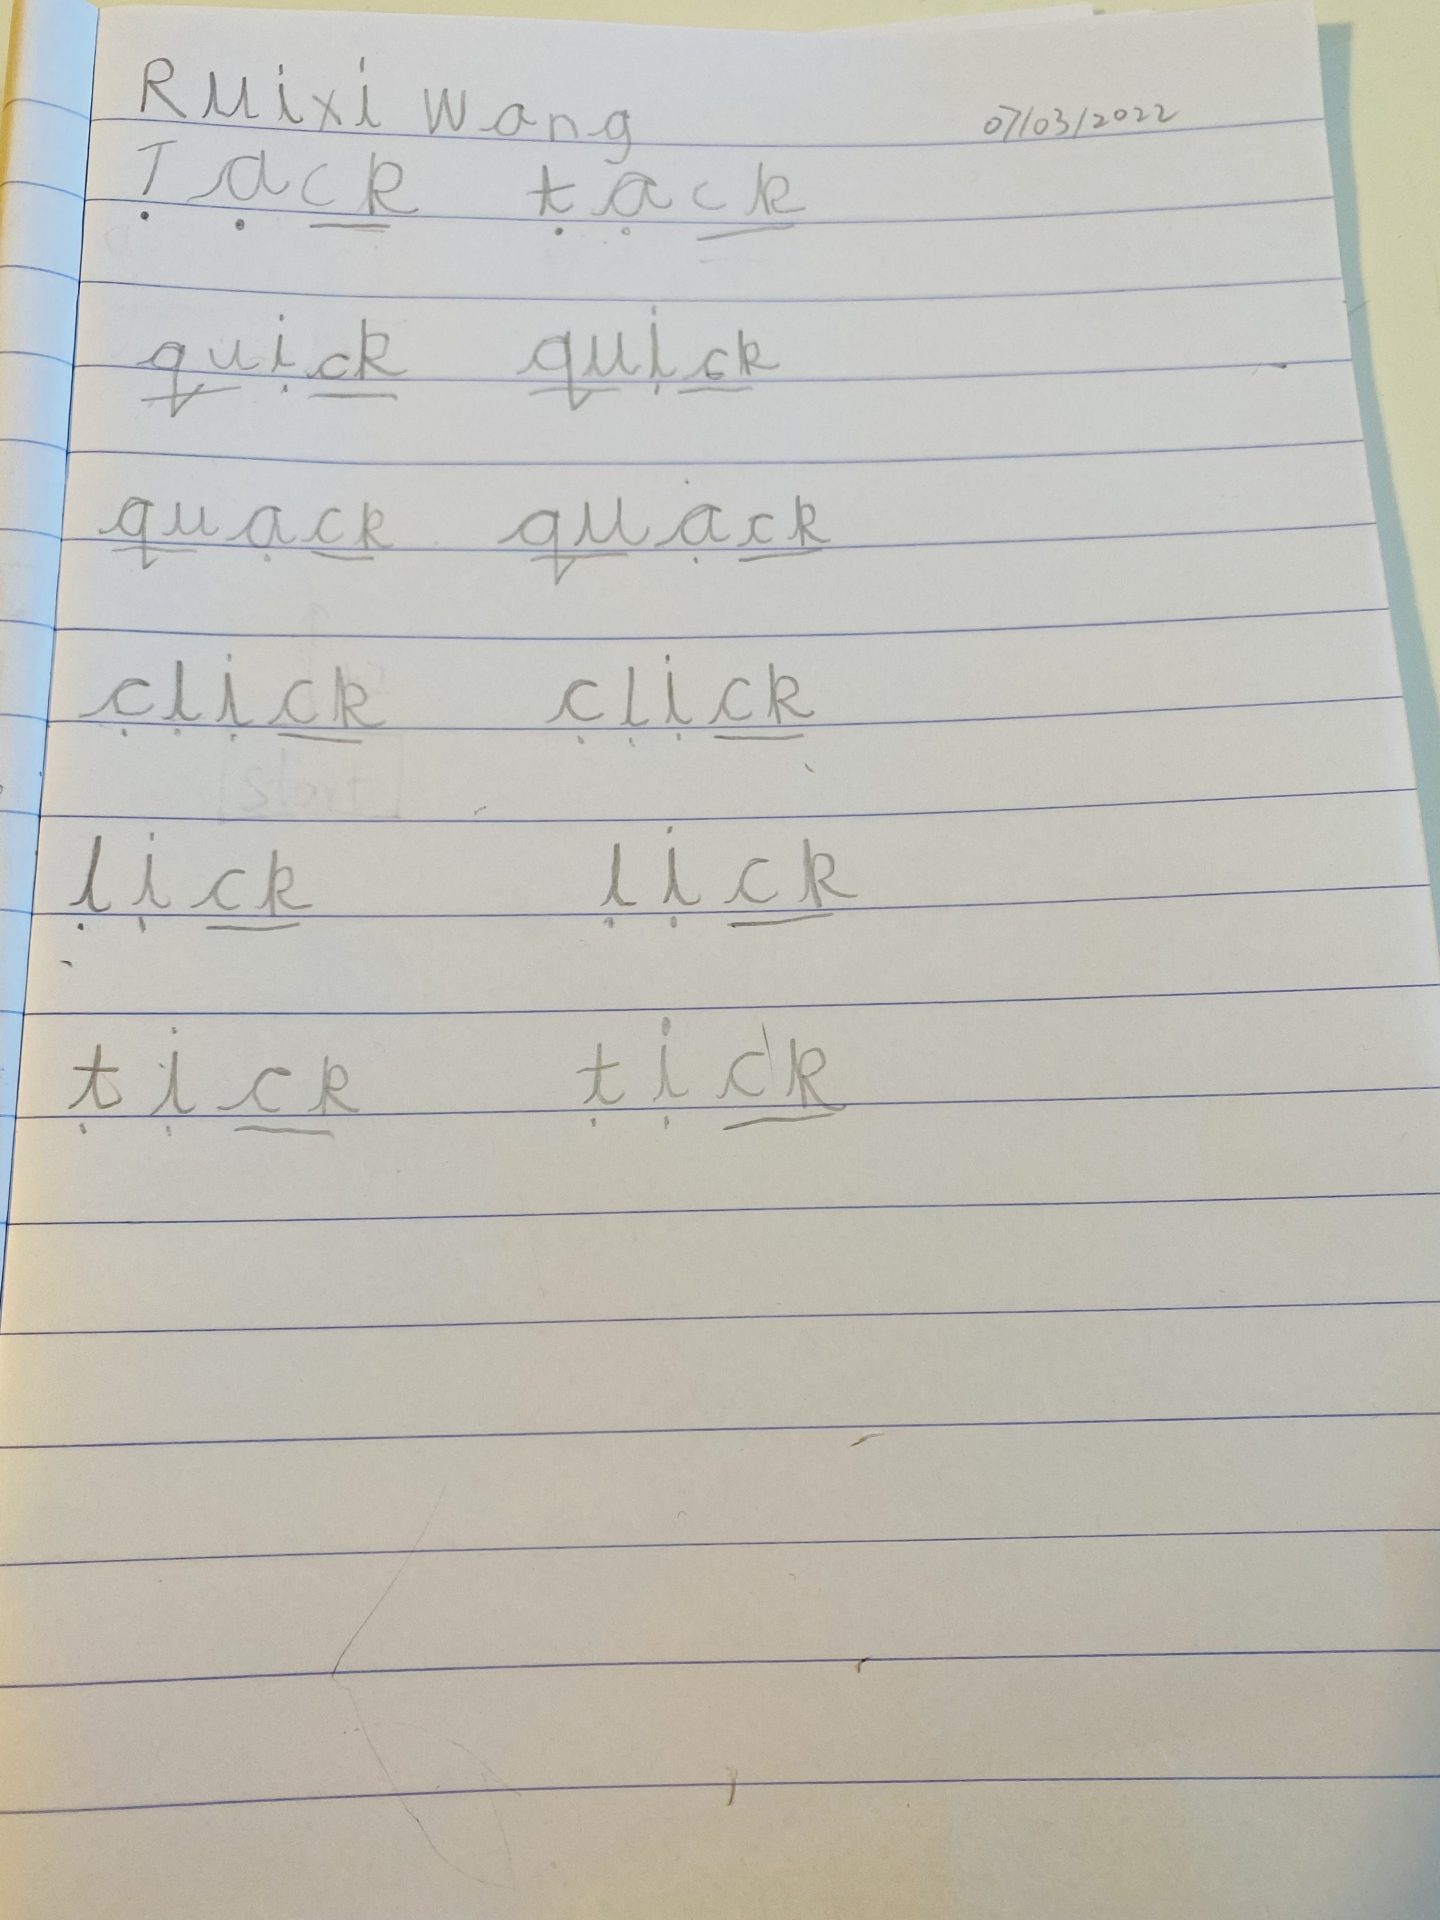 Ruixi Wang 07/03/2022
Tack tack
quick quick
quack quack
click click
Start
lick lick
tick tick